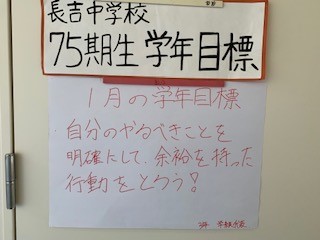 長吉中学校
75期生 学年目標
1月の学年目標
自分のやるべきことを
明確にして、余裕を持った
行動をとろう！